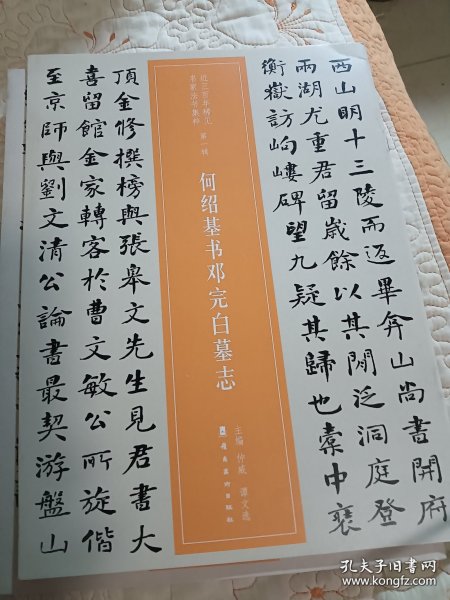 西山明十三陵而返畢弇山尚書開府
兩湖尤重君留歲餘以其閒泛洞庭登
衡嶽訪岣嶁碑望九疑其歸也橐中裒
近三百年稀见
名家法书集粹
第一辑
何绍基书邓完白墓志
主编 仲威 谭文选
岭南美术出版社
頂金修撰榜與張皋文先生見君書大
喜留館金家轉客於曹文敏公所旋偕
至京師與劉文清公論書最契游盤山
孔夫子旧书网
www.kongfz.com